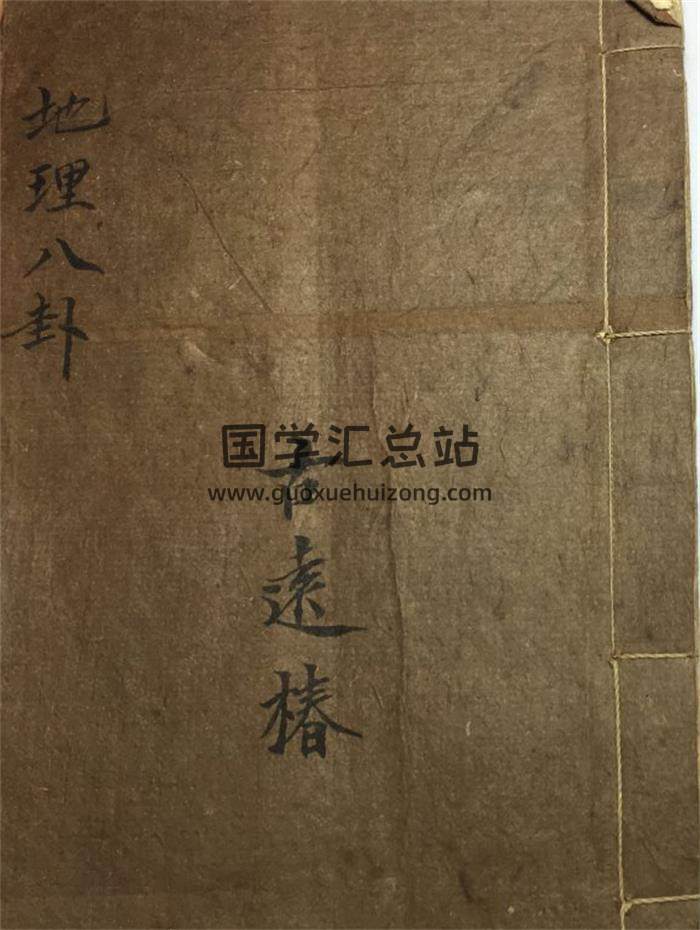 地理八卦
国学汇总站
www.guoxuehuizong.com
古遠椿